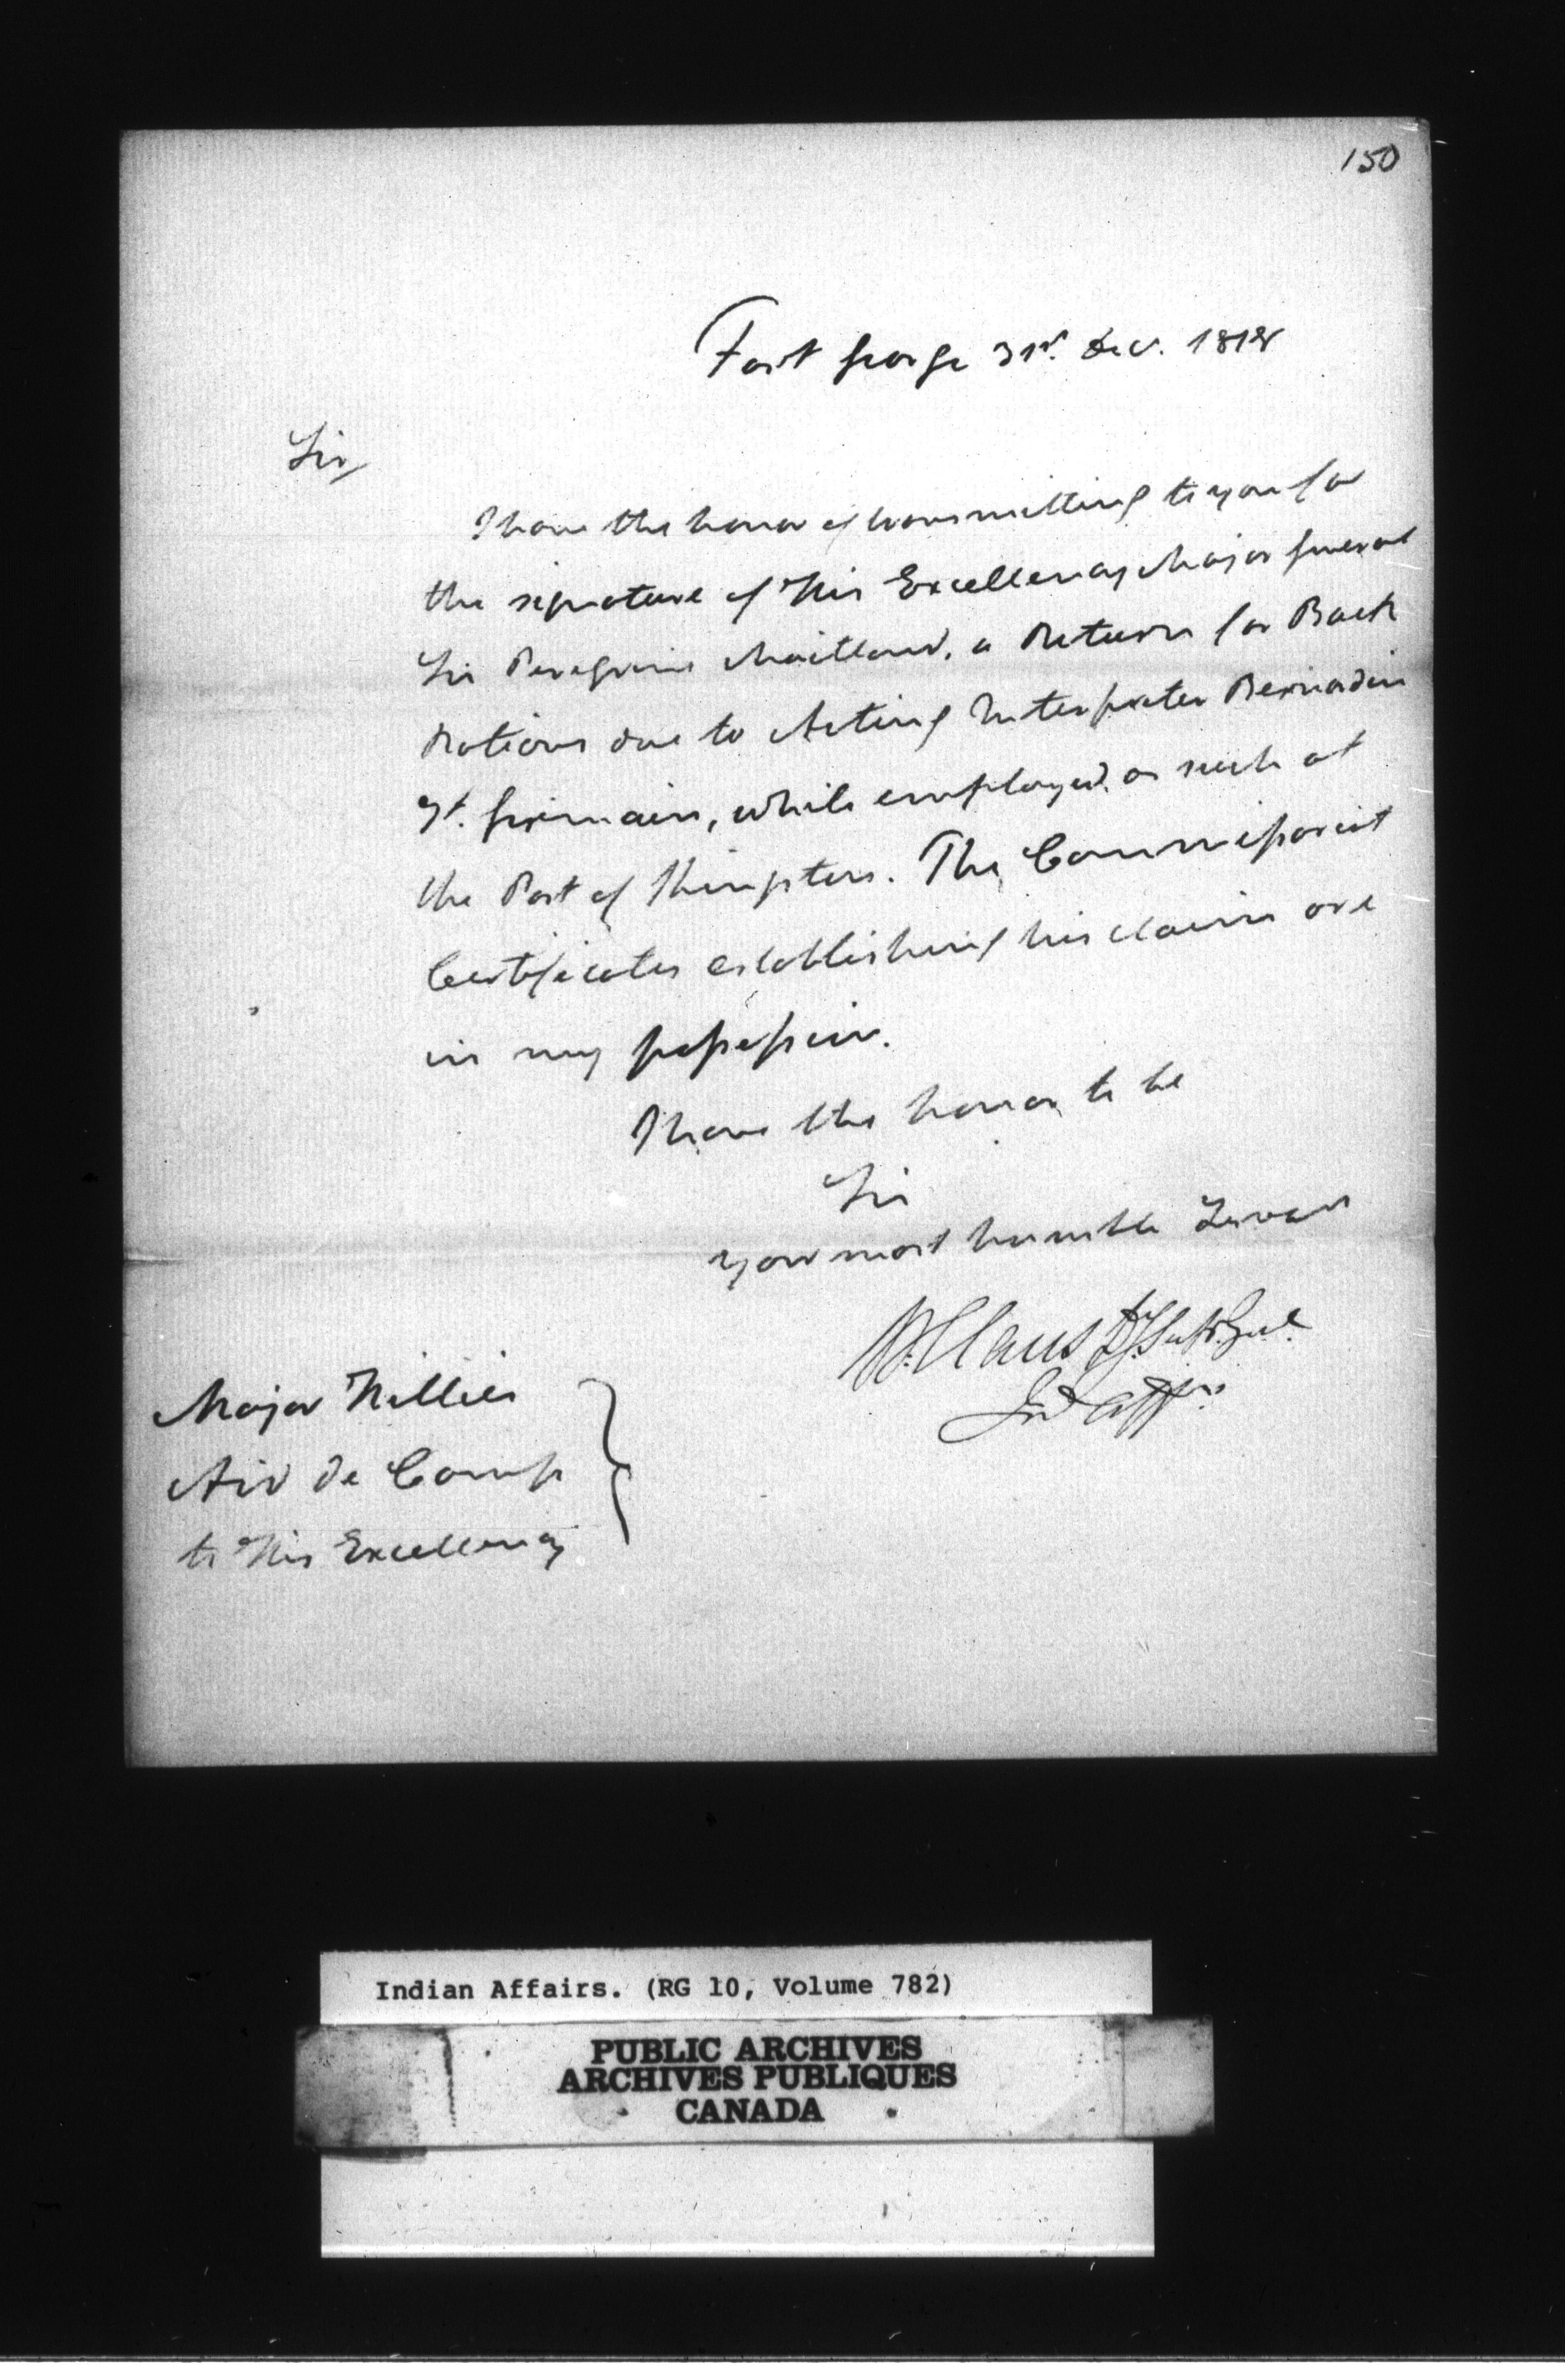 150
Fort George 31st. Dec. 1818
Sir,
I have the honor of transmitting to you for
the signature of His Excellency Major General
Sir Peregrine Maitland, a Return for Back
Rations due to Acting Interpreter Bernardin
St. Germain, while employed as such at
the Post of Kingston. The Commissariat
Certificates establishing his claim are
in my possession.
I have the honor to be
Sir
your most humble Servant
W: Claus D.Supt. Genl.
Ind Affrs:
Major Hillier
Aid de Camp
to His Excellency
Indian Affairs. (RG 10, Volume 782)
PUBLIC ARCHIVES
ARCHIVES PUBLIQUES
CANADA